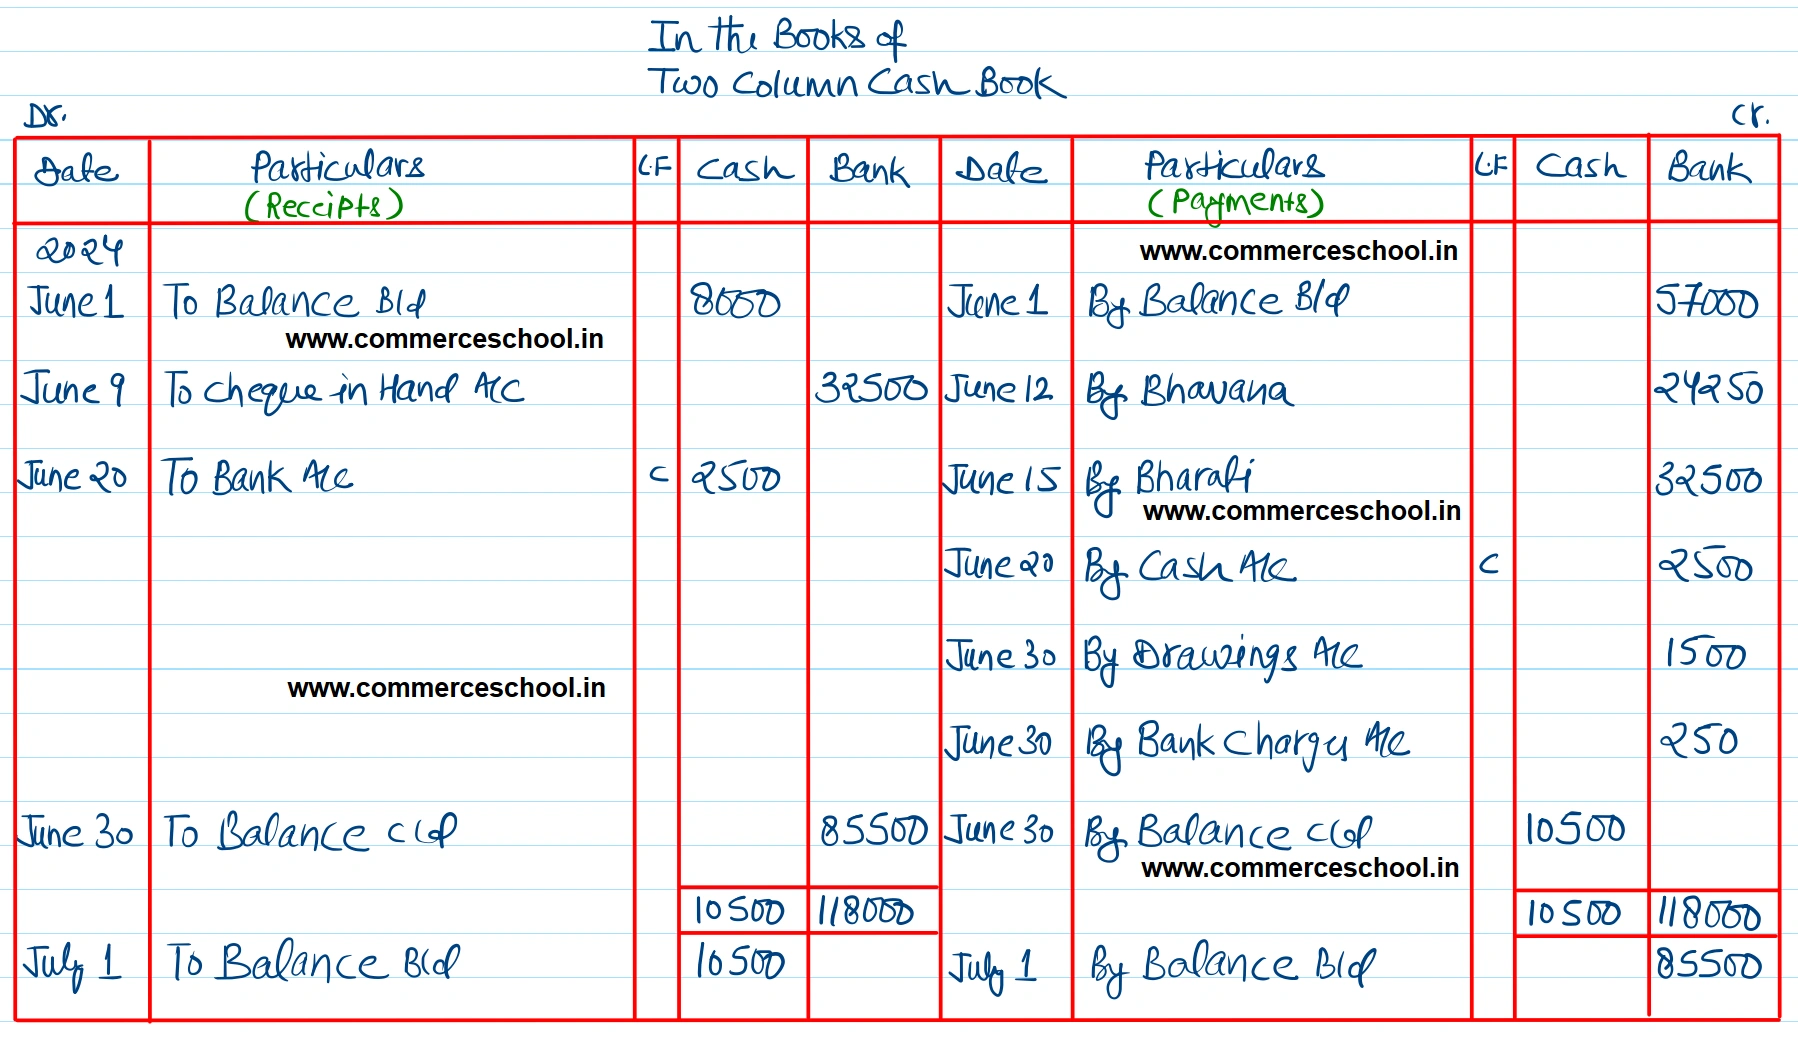 In the Books of
Two Column Cash Book
Dr. Cr.
Date Particulars L.F Cash Bank Date Particulars L.F Cash Bank
(Receipts) (Payments)
2024 www.commerceschool.in
June 1 To Balance B/d 8000 June 1 By Balance B/d 57000
www.commerceschool.in
June 9 To cheque in Hand A/C 32500 June 12 By Bhavana 24250
June 20 To Bank A/c C 2500 June 15 By Bharati 32500
www.commerceschool.in
June 20 By Cash A/c C 2500
June 30 By Drawings A/c 1500
www.commerceschool.in
June 30 By Bank Charges A/c 250
June 30 To Balance c/d 85500 June 30 By Balance c/d 10500
www.commerceschool.in
10500 118000 10500 118000
July 1 To Balance B/d 10500 July 1 By Balance B/d 85500